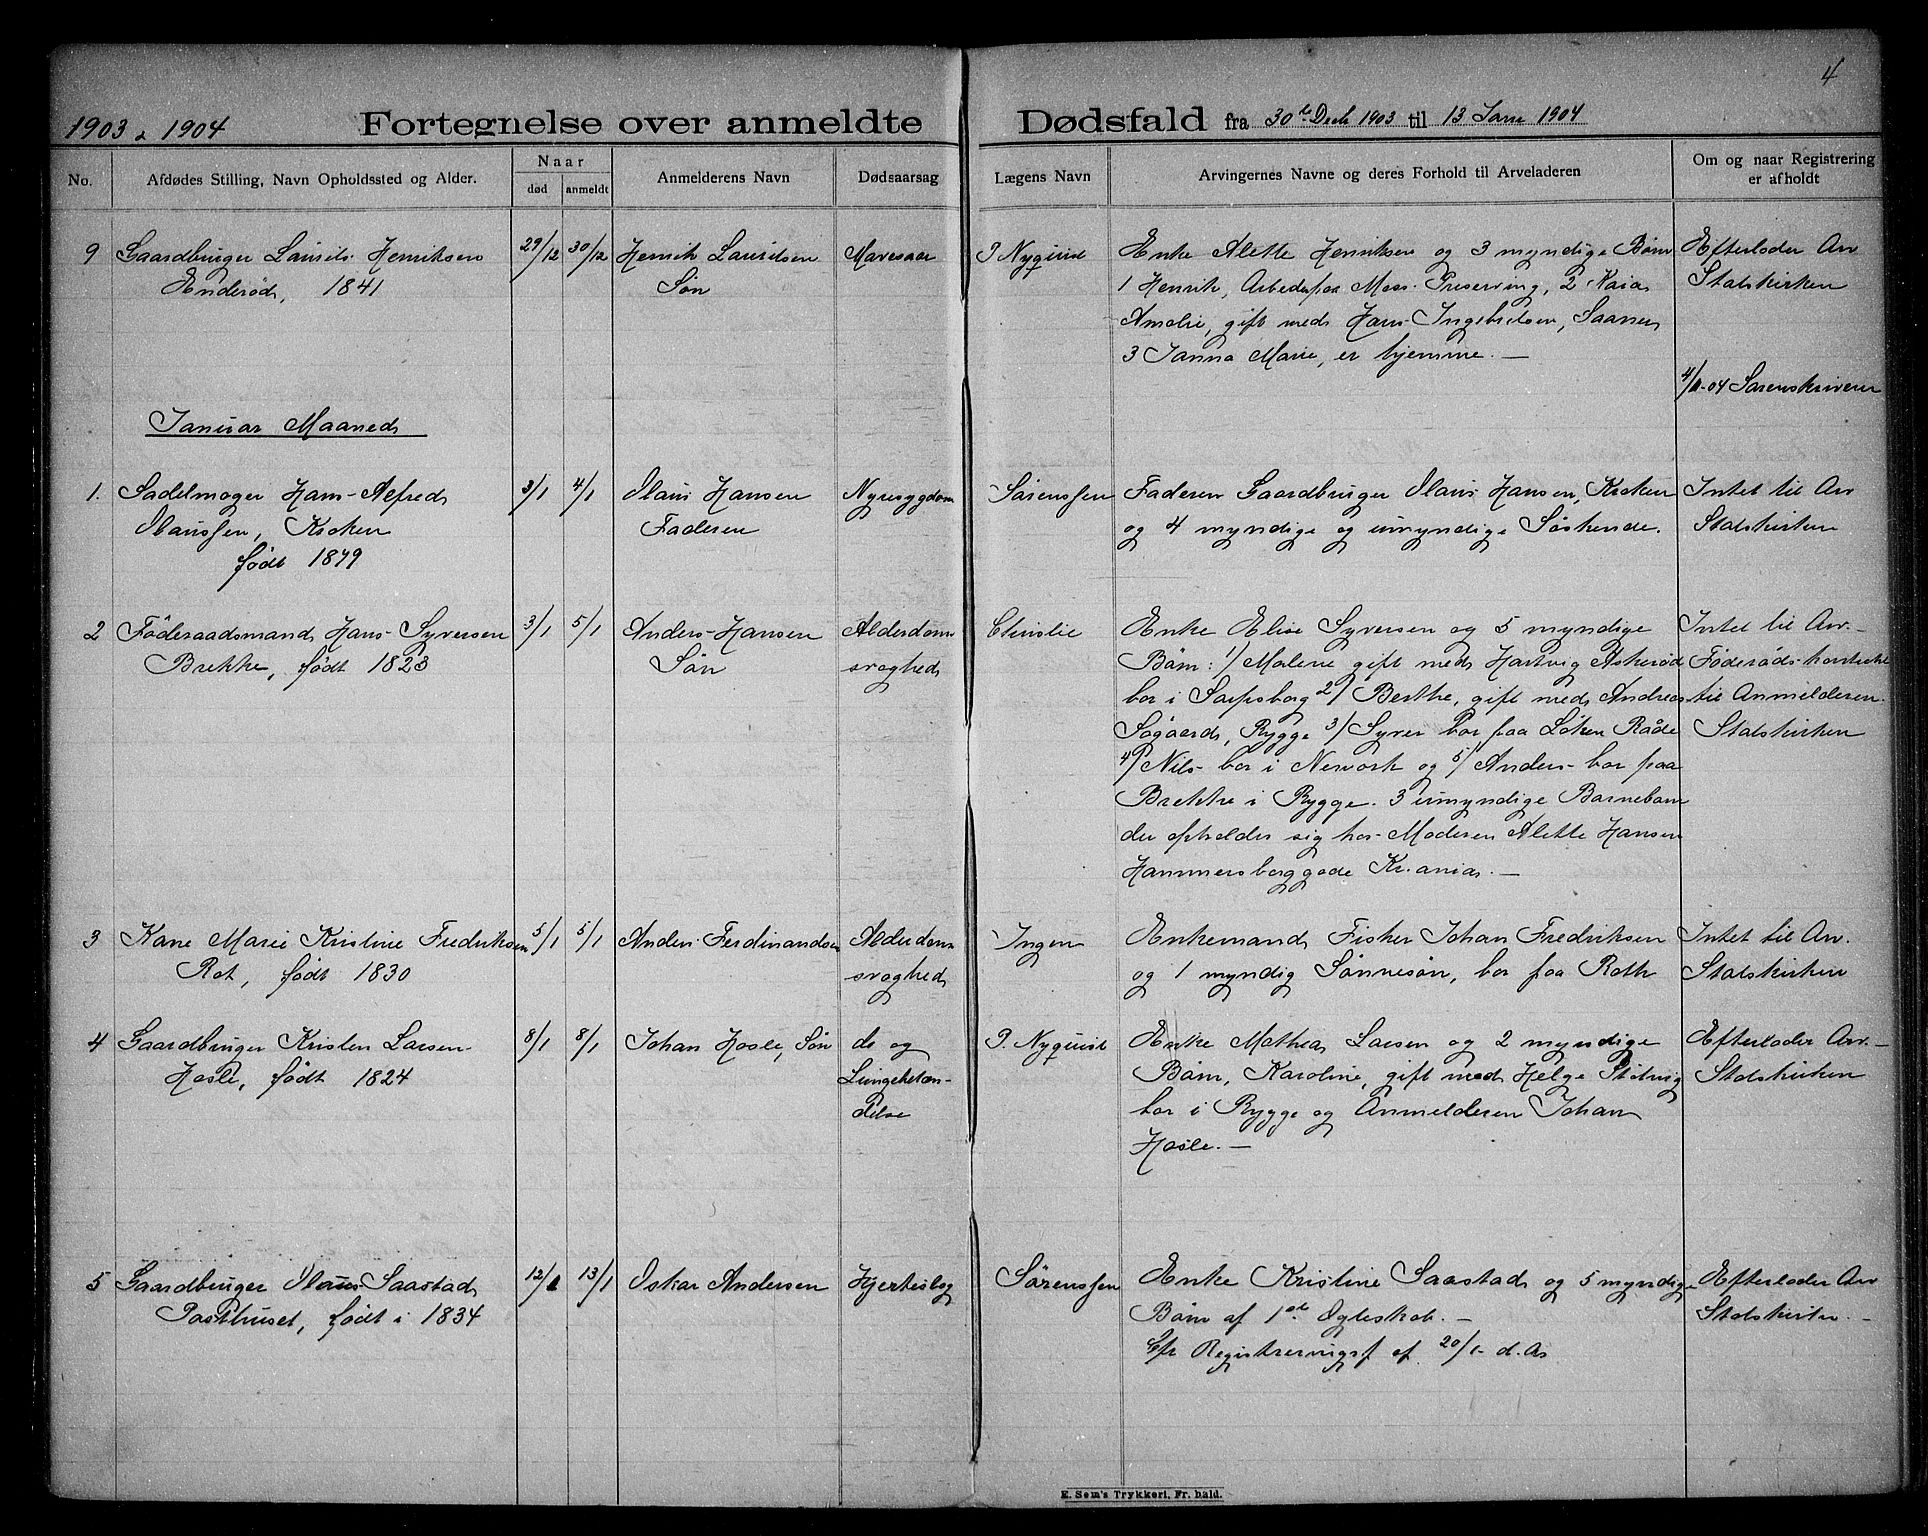 4
1903 & 1904 Fortegnelse over anmeldte Dødsfald fra 30te Decb 1903 til 13 Janr 1904
No. Afdødes Stilling, Navn Opholdssted og Alder. Naar død anmeldt Anmelderens Navn Dødsaarsag Lægens Navn Arvingernes Navne og deres Forhold til Arveladeren Om og naar Registrering er afholdt
9 Gaardbruger Laurits Henriksen 29/12 30/12 Henrik Lauritsen Mavesaar P Nyquist Enke Alette Henriksen og 3 myndige Børn Efterlader Arv
Enderød, 1841 Søn 1 Henrik, Arbeder paa Moss Preserving, 2 Kaia Statskirken
Amalie, gift med Hans Ingebretsen, Saanen
3 Janna Marie, er hjemme. —
4/1-04 Sorenskriveren
Januar Maaned
1. Sadelmager Hans Alfred 3/1 4/1 Olaus Hansen Nyresygdom Sørenssen Faderen Gaardbruger Olaus Hansen, Kroken Intet til Arv
Olaussen, Kroken Faderen og 4 myndige og umyndige Søskende. Statskirken
født 1879
2 Føderaadsmand Hans Syversen 3/1 5/1 Anders Hansen Alderdoms Christie Enke Elise Syversen og 5 myndige Intet til Arv.—
Brekke, født 1823 Søn svaghed Børn: 1/ Malene gift med Hartvig Askerød Føderåds-kontrakt
bor i Sarpsborg 2/ Berthe, gift med Andreas til Anmelderen.
Søgaard, Rygge 3/ Syver bor paa Løken Råde Statskirken
4/ Nils bor i Nework og 5/ Anders bor paa
Brekke i Rygge. 3 umyndige Barnebarn
der opholder sig hos Moderen Alette Hansen
Hammersborggade Kr.ania. —
3 Kane Marie Kristine Fredriksen 5/1 5/1 Anders Ferdinandsen Alderdoms Ingen Enkemand Fisker Johan Fredriksen Intet til Arv.
Rot, født 1830 svaghed og 1 myndig Sønnesøn, bor paa Roth Statskirken
4 Gaardbruger Kristen Larsen 8/1 8/1 Johan Hasle, Søn do og P. Nyquist Enke Mathea Larsen og 2 myndige Efterlader Arv.—
Hasle, født 1824 Lungebetæn- Børn, Karoline, gift med Helge Statskirken
delse bor i Rygge og Anmelderen Johan
Hasle. —
5 Gaardbruger Olaus Saastad 12/1 13/1 Oskar Andersen Hjerteslag Sørenssen Enke Kristine Saastad og 5 myndige Efterlader Arv
Posthuset, født i 1834 Børn af 1ste Egteskab. — Statskirken. —
Cfr Registreringsf af 20/1- d. As
E. Sem's Trykkeri, Fr.hald.